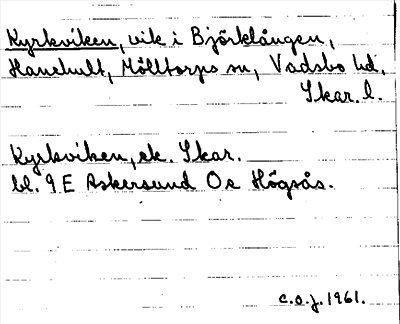 Kyrkviken, vik i Björklången,
Hanshult, Mölltorps sn, Vadsbo hd,
Skar. l.
Kyrkviken, ek. Skar.
bl. 9 E Askersund Oc Högsås.
c.o.j. 1961.